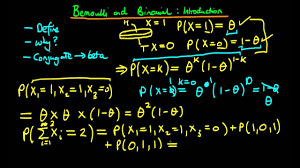 Bernoulli and Binomial : Introduction
- Define
- Why?
- Conjugate → beta
H X = 1 P(X=1) = θ
T X = 0 P(X=0) = 1-θ
⇒ P(X=k) = θ^k (1-θ)^{1-k}
P(X_1=1, X_2=1, X_3=0)
= θ × θ × (1-θ) = θ²(1-θ)
P(∑_{i=1}^{3} X_i = 2) = P(X_1=1, X_2=1, X_3=0) + P(1,0,1)
+ P(0,1,1) =